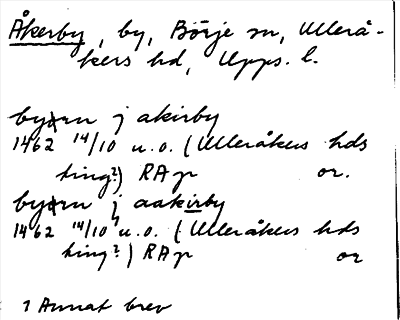 Åkerby, by, Börje sn, Ullerå-
kers hd, Upps. l.
byørn j akirby
1462 14/10 u.o. (Ulleråkers hds
ting?) RAp or.
byørn j aakirby
1462 14/10 u.o. (Ulleråkers hds
ting?) RAp or
1 Annat brev